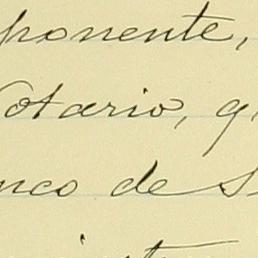 ponente,
Notario, q
nco de S